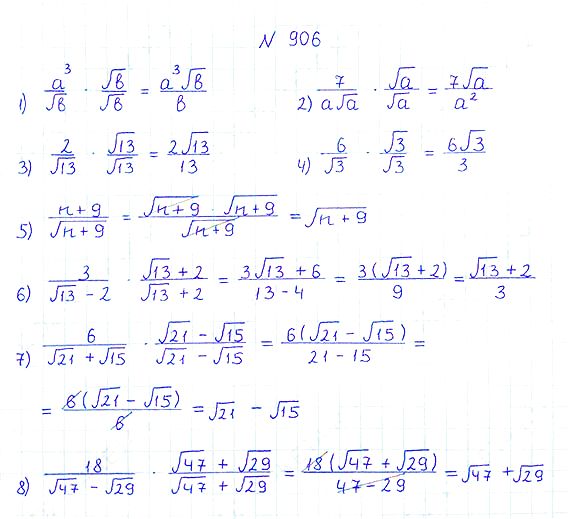 N 906
1) a³/√b · √b/√b = a³√b/b 2) 7/a√a · √a/√a = 7√a/a²
3) 2/√13 · √13/√13 = 2√13/13 4) 6/√3 · √3/√3 = 6√3/3
5) n+9/√n+9 = √n+9 · √n+9/√n+9 = √n+9
6) 3/√13 - 2 · √13 + 2/√13 + 2 = 3√13 + 6/13 - 4 = 3(√13 + 2)/9 = √13 + 2/3
7) 6/√21 + √15 · √21 - √15/√21 - √15 = 6(√21 - √15)/21 - 15 =
= 6(√21 - √15)/6 = √21 - √15
8) 18/√47 - √29 · √47 + √29/√47 + √29 = 18(√47 + √29)/47 - 29 = √47 + √29